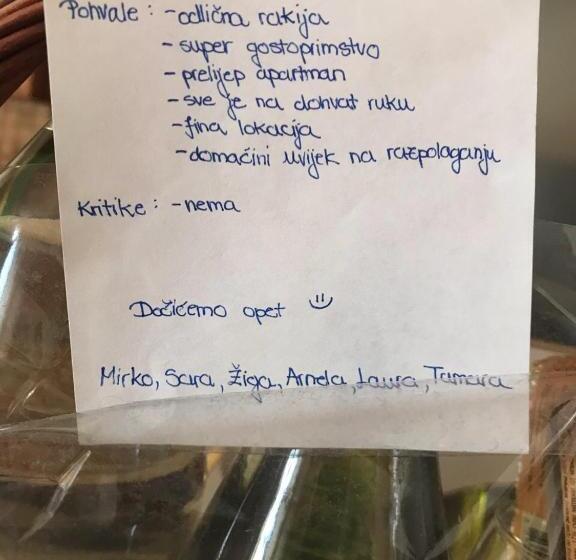 Pohvale: -odlična rakija
- super gostoprimstvo
- prelijep apartman
- sve je na dohvat ruku
- fina lokacija
- domaćini uvijek na razpolaganju
Kritike: - nema
Dočićemo opet
Mirko, Sara, Žiga, Arnela, Laura, Tamara